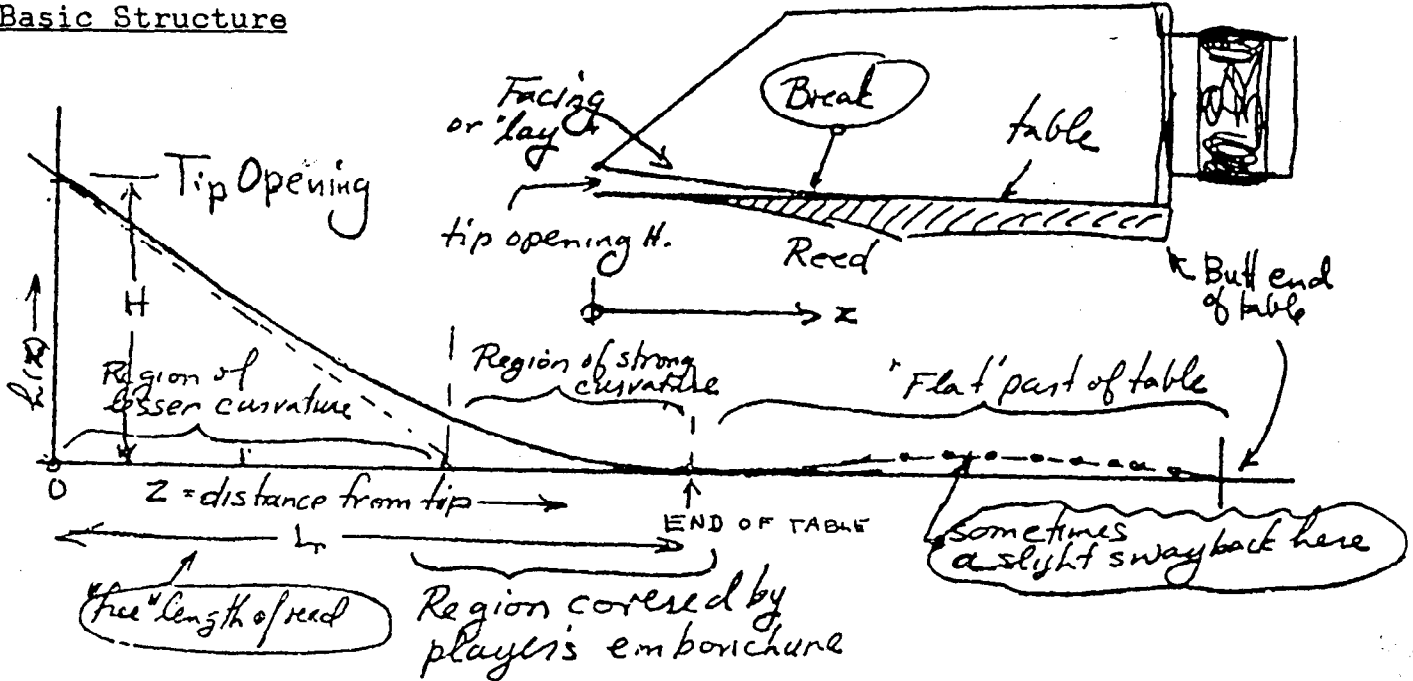 Basic Structure
Facing
or "lay"
Break
table
Tip Opening
tip opening H.
Reed
Butt end
of table
z
H
h(z) →
Region of
lesser curvature
Region of strong
curvature
"Flat" part of table
0
Z = distance from tip
END OF TABLE
Lr
sometimes
a slight swayback here
"free" length of reed
Region covered by
player's embouchure